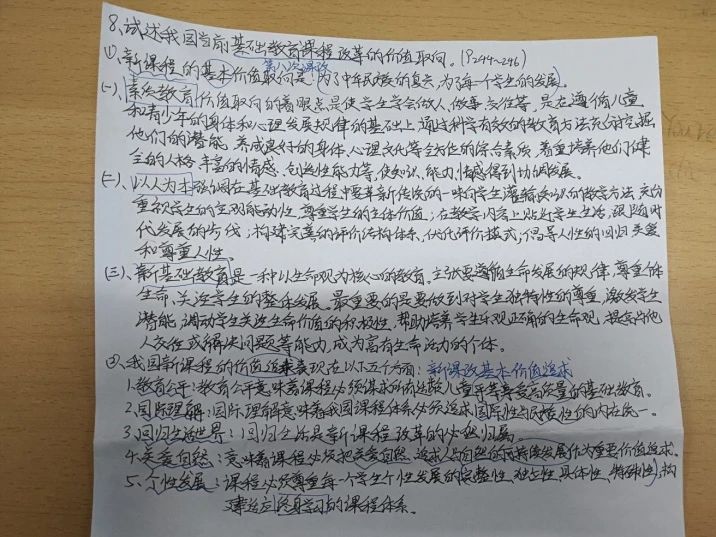 8、试述我国当前基础教育课程改革的价值取向。(P244~246)
第八次课改
①、新课程的基本价值取向是:为了中华民族的复兴,为了每一个学生的发展。
(一)、素质教育价值取向的着眼点是使学生学会做人、做事、与任等,是在遵循儿童
和青少年的身体和心理发展规律的基础上,通过科学有效的教育方法充分挖掘
他们的潜能,养成良好的身体、心理文化等全方位的综合素质,着重培养他们健
全的人格、丰富的情感、创造性能力等,使知识、能力、情感得到协调发展。
(二)、以人为本强调在基础教育过程中要革新传统的一味向学生灌输知识的教学方法,充分
重视学生的主观能动性,尊重学生的主体价值;在教学内容上贴近学生生活,跟随时
代发展的步伐;构建完善的评价结构体系、优化评价模式;倡导人性的回归,关爱
和尊重人性。
(三)、新基础教育是一种以生命观为核心的教育。主张要遵循生命发展的规律,尊重个体
生命,关注学生的整体发展。最重要的是要做到对学生独特性的尊重,激发学生
潜能,调动学生关注生命价值的积极性,帮助培养学生乐观正确的生命观,提高与他
人交往或解决问题等能力,成为富有生命活力的个体。
②、我国新课程的价值追求表现在以下五个方面:新课改基本价值追求
1.教育公平:教育公平意味着课程必须谋求所有适龄儿童平等享受高质量的基础教育。
2.国际理解:国际理解意味着我国课程体系必须追求国际性与民族性的内在统一。
3.回归生活世界:回归生活是新课程改革的必然归属。
4.关爱自然:意味着课程必须把关爱自然,追求人与自然的可持续发展作为重要价值追求。
5.个性发展:课程必须尊重每一个学生个性发展的完整性、独立性、具体性、特殊性,构
建适应终身学习的课程体系。